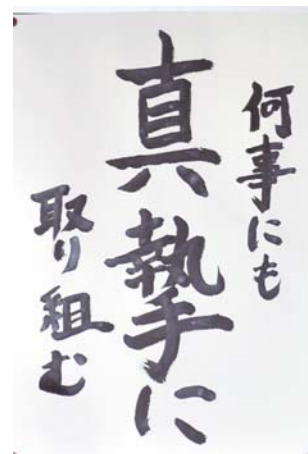 何事にも
真摯に
取り組む